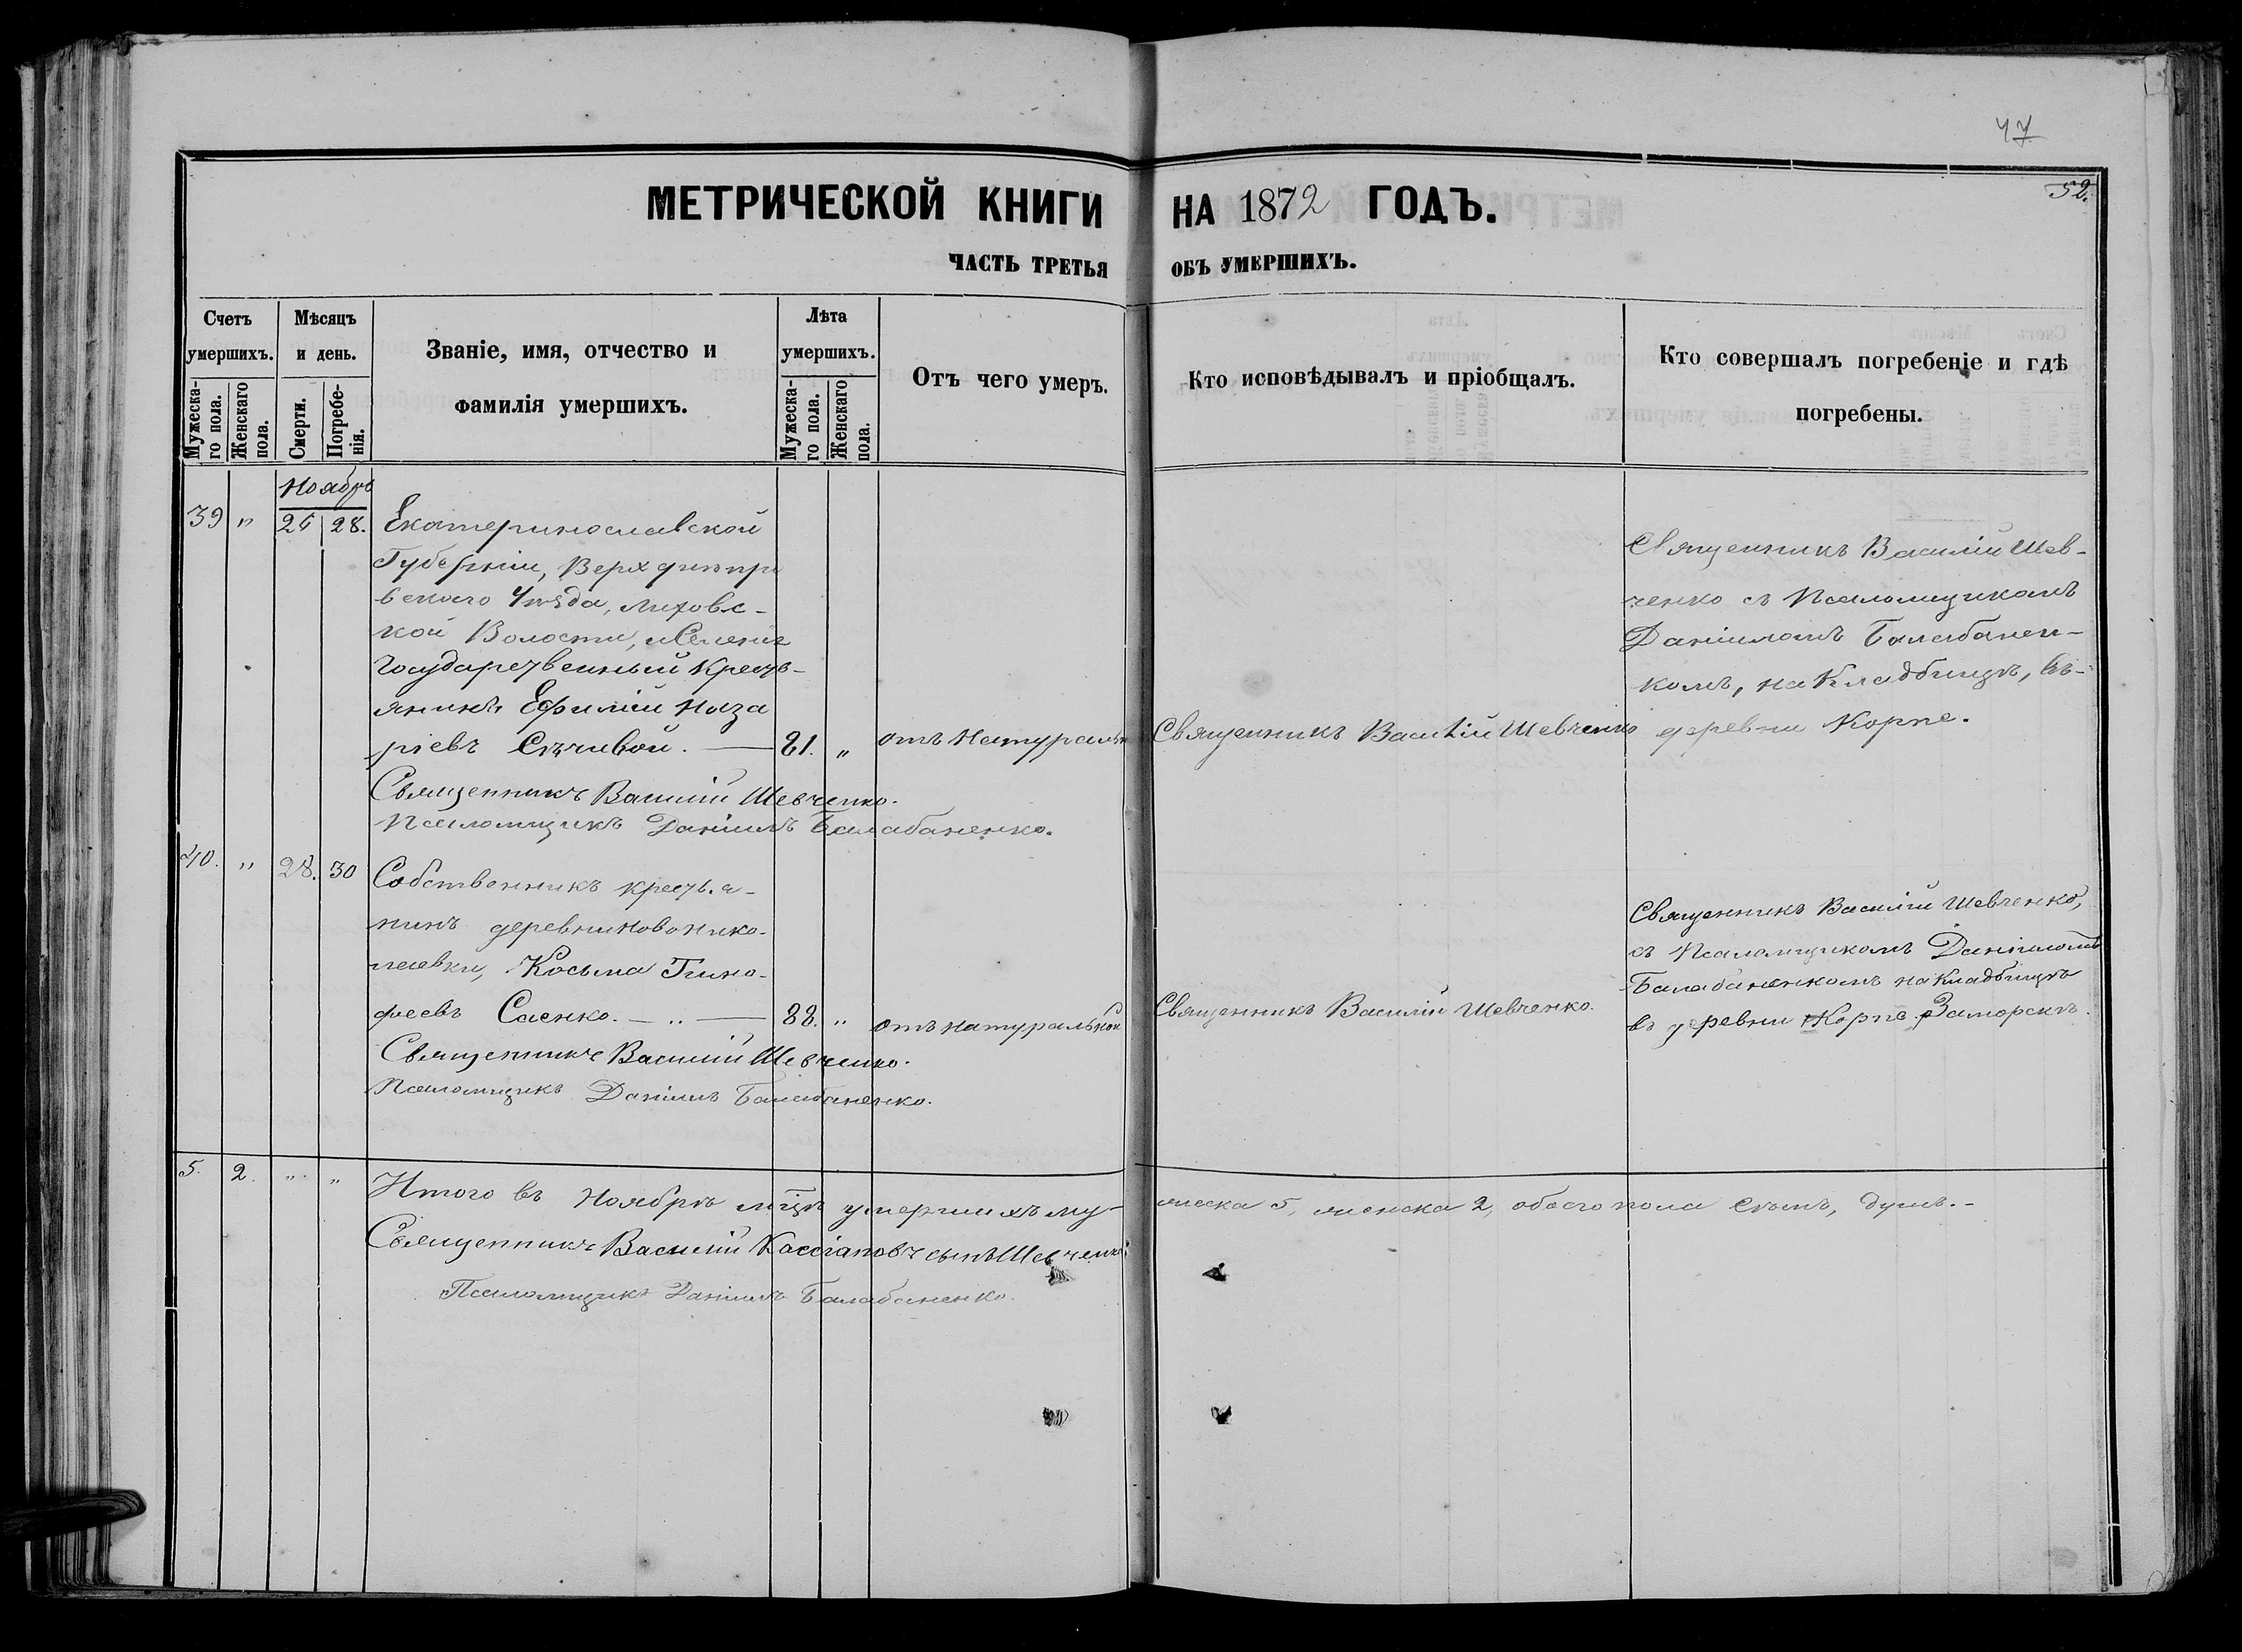 47
52.
МЕТРИЧЕСКОЙ КНИГИ НА 1872 ГОДЪ.
ЧАСТЬ ТРЕТЬЯ ОБЪ УМЕРШИХЪ.
Счетъ умершихъ.
Мужеска-го пола.
Женскаго пола.
Мѣсяцъ и день.
Смерти.
Погребе-нія.
Званіе, имя, отчество и
фамилія умершихъ.
Лѣта умершихъ.
Мужеска-го пола.
Женскаго пола.
Отъ чего умеръ.
Кто исповѣдывалъ и пріобщалъ.
Кто совершалъ погребеніе и гдѣ
погребены.
Ноябрь
39 " 28. Екатеринославской
Губерніи, Верходнепро
вскаго Уѣзда, Лиховс-
кой Волости,
Государственный Кресть-
янинъ Ефимій Наза
ріевъ 81. " отъ натуральн
Священникъ Василій Шевченко.
Псаломщикъ Даніилъ Балабаненко.
Священникъ Василій Шевченко
Священникъ Василій Шев-
ченко съ Псаломщикомъ
Даніиломъ Балабанен-
комъ, на Кладбищѣ, въ-
деревни Корпе.
40. " 28. 30 Собственникъ кресть.я-
нинъ деревни Новонико-
лаевки, Косьма Тимо-
феевъ Саенко. — .. — 88. " отъ натуральной
Священникъ Василій Шевченко.
Псаломщикъ Даніилъ Балабаненко.
Священникъ Василій Шевченко.
Священникъ Василій Шевченко,
съ Псаломщикомъ Даніиломъ
Балабаненкомъ на Кладбищѣ
въ деревни Корпе Заморскъ.
5. 2. " " Итого въ Ноябрѣ мцѣ умершихъ му-
жеска 5, женска 2, обоего пола семь, душъ.-
Священникъ Василій Кассіановъ сынъ Шевченко
Псаломщикъ Даніилъ Балабаненко.